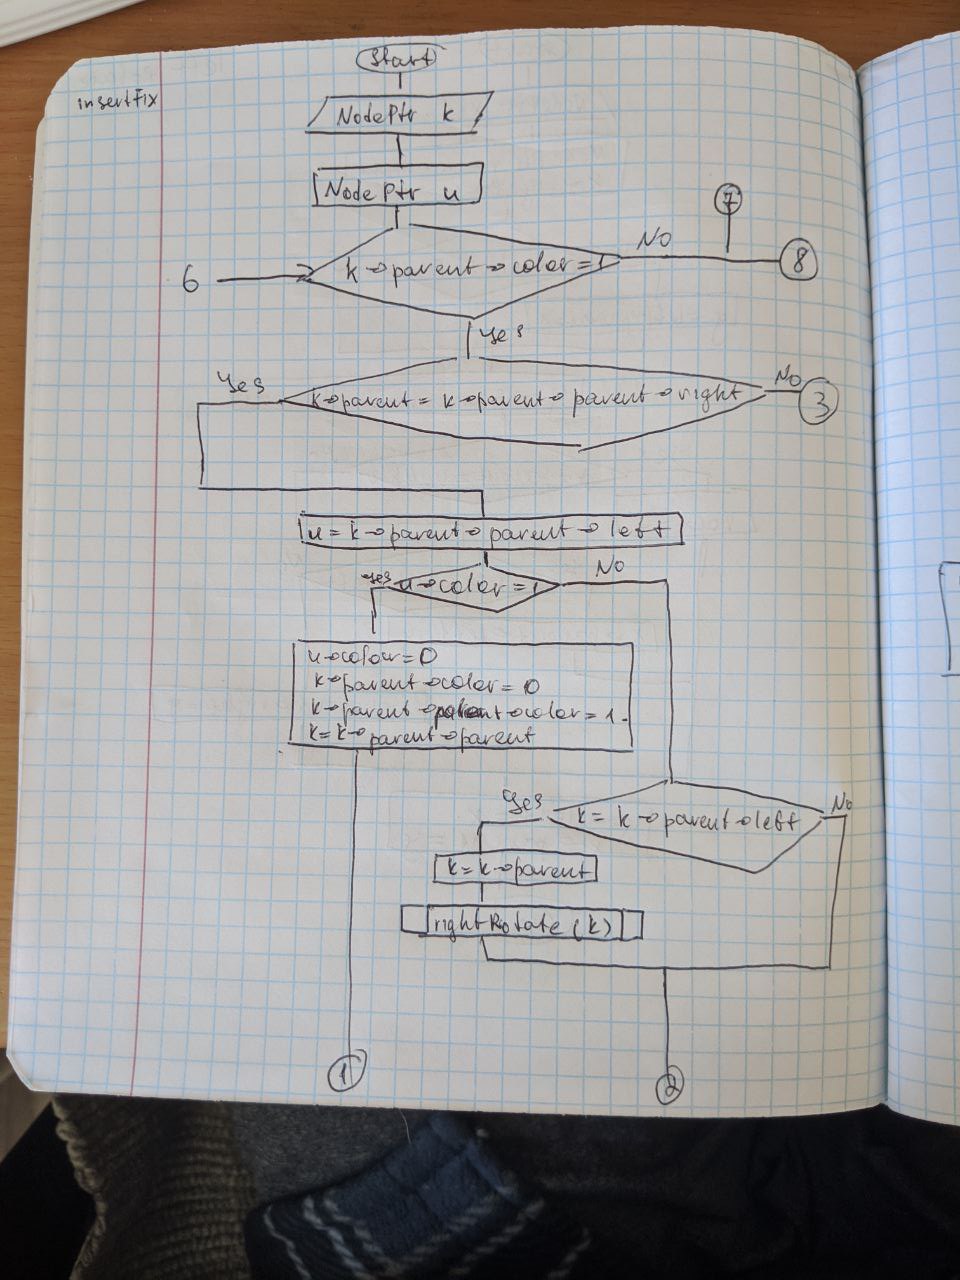 insertFix
Start
NodePtr k
NodePtr u
7
No
8
6
k→parent→color=1
Yes
Yes
No
k→parent = k→parent→parent→right
3
u = k→parent→parent→left
Yes
u→color=1
No
u→colour=0
k→parent→color=0
k→parent→parent→color=1
k=k→parent→parent
Yes
k= k→parent→left
No
k=k→parent
rightRotate(k)
1
2